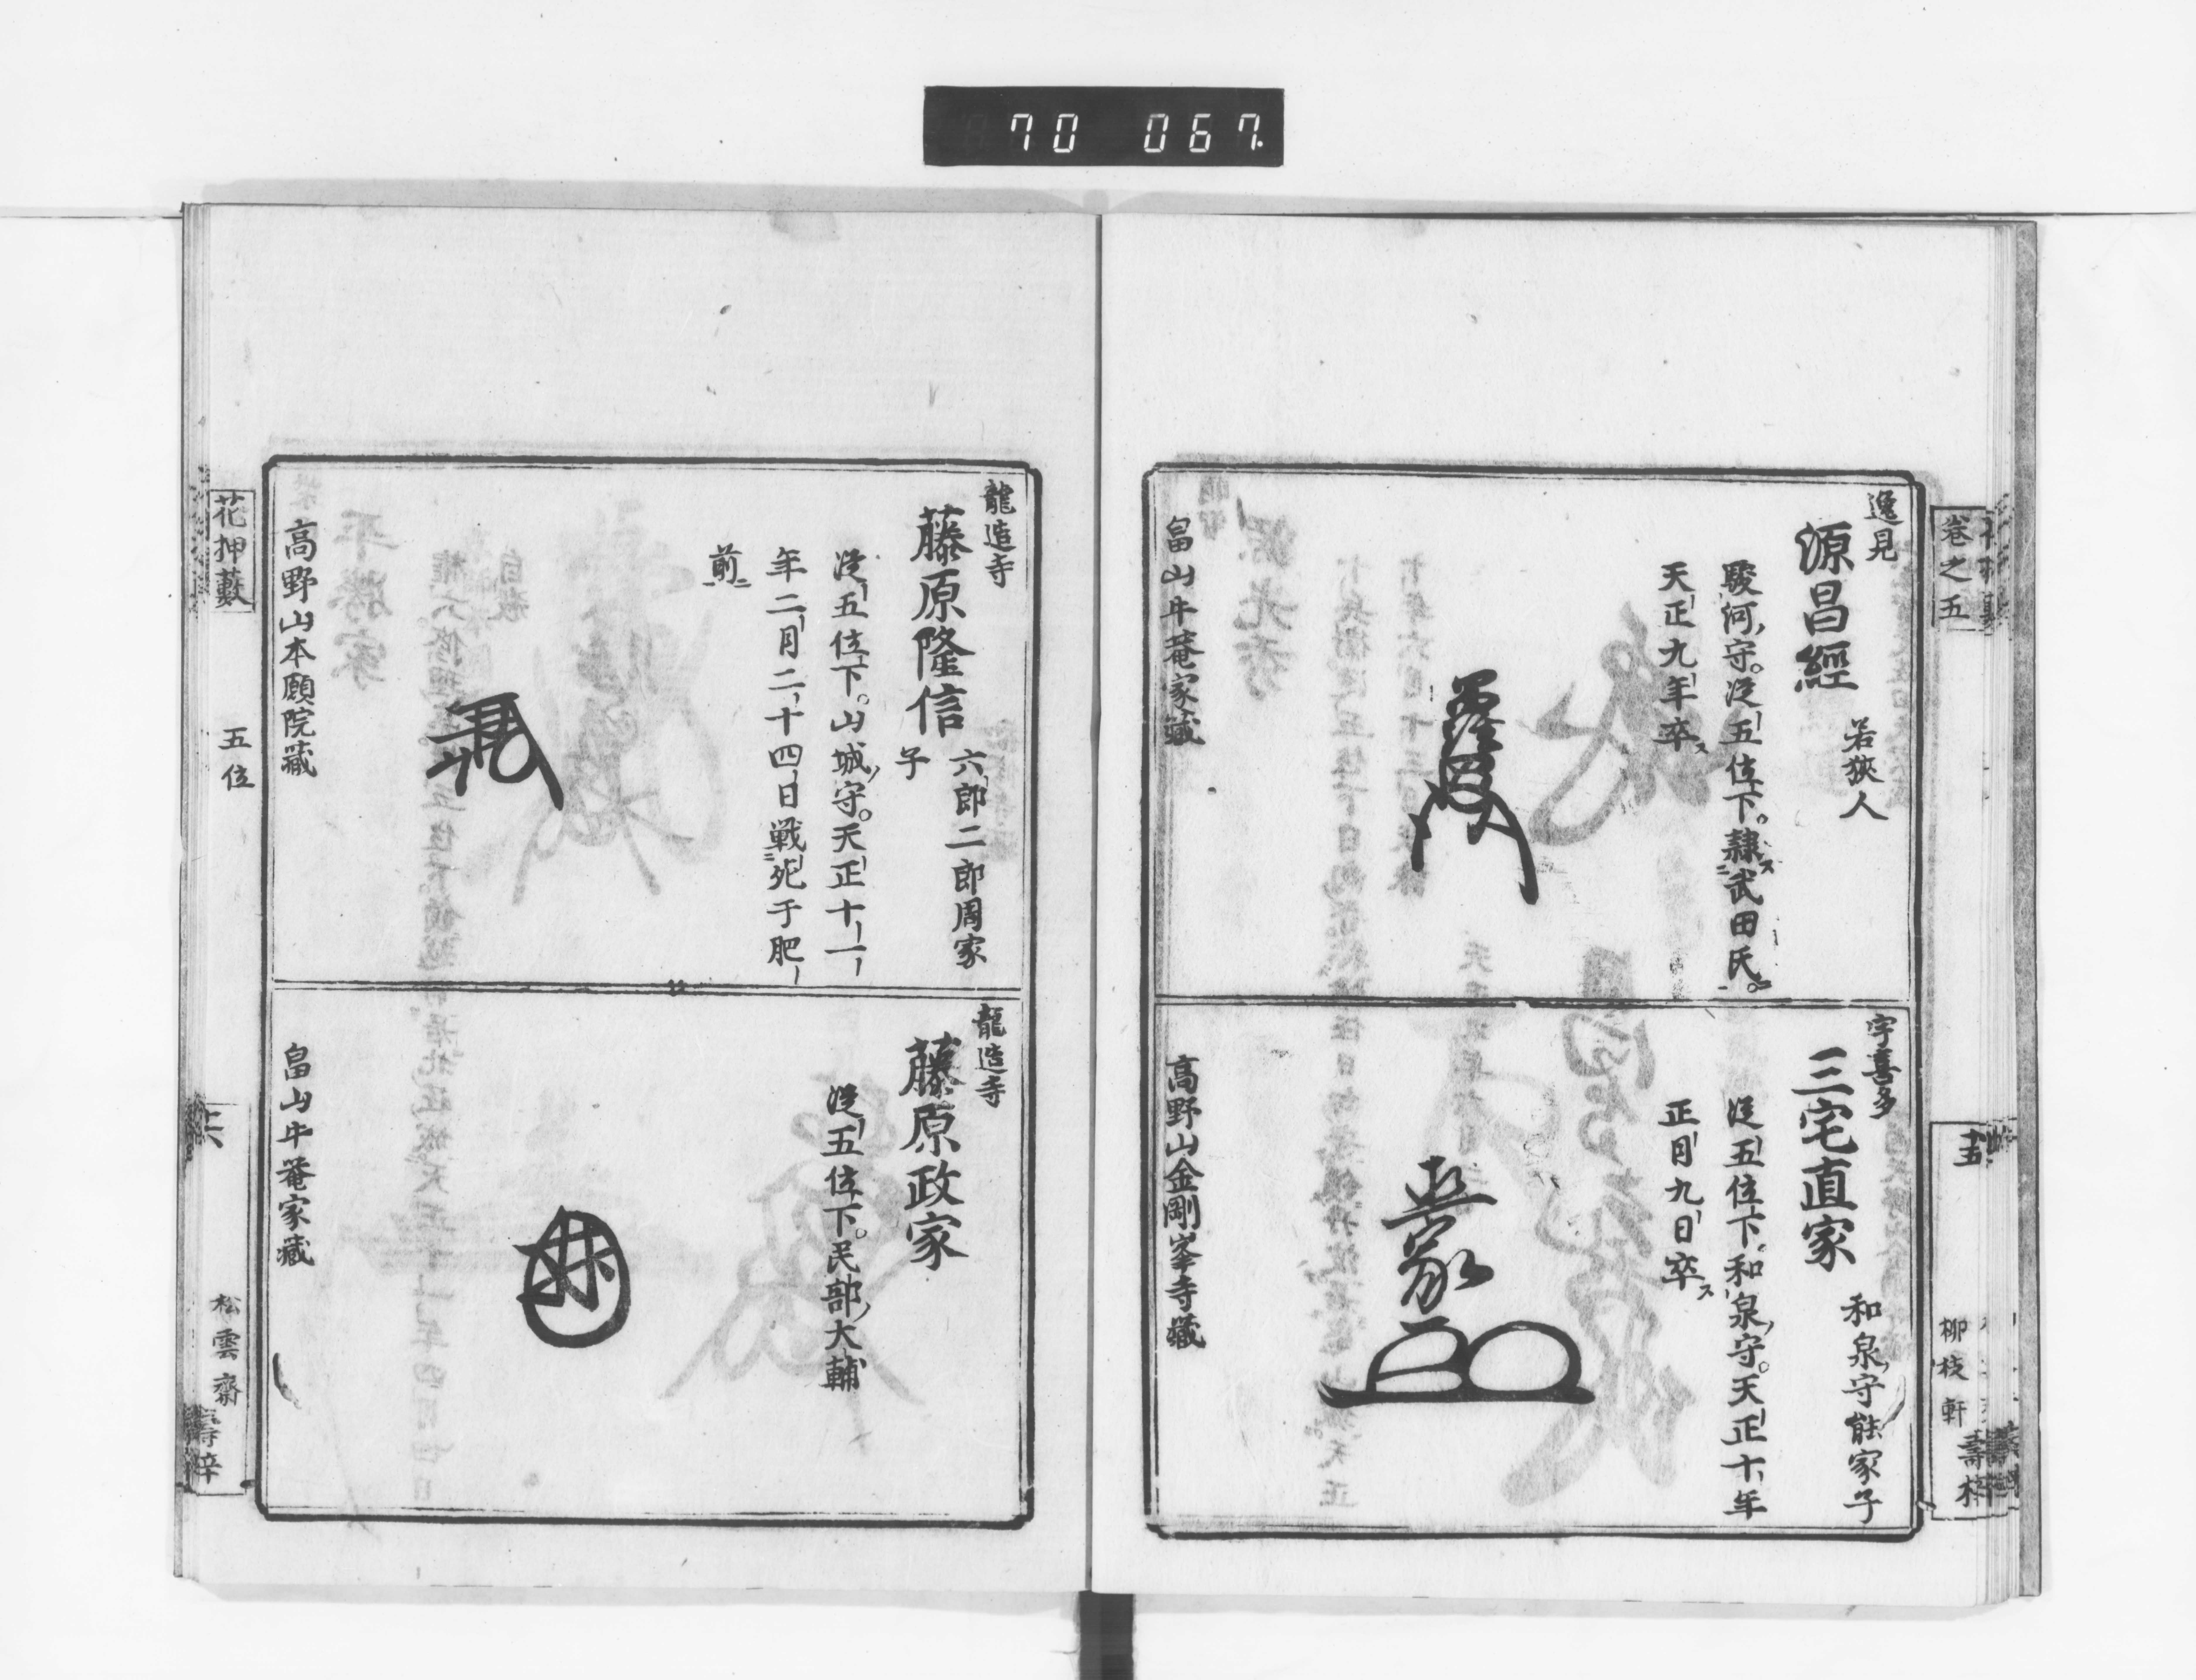 70 067
卷之五
逸見
源昌經
若狹人
駿河守。從五位下。隷武田氏。
天正九年卒
畠山牛菴家藏
宇喜多
三宅直家
和泉守能家子
從五位下和泉守。天正十年
正月九日卒
高野山金剛峯寺藏
柳枝軒
龍造寺
藤原隆信
六郎二郎周家
子
從五位下。山城守。天正十一
年二月二十四日戰死于肥
前
高野山本願院藏
龍造寺
藤原政家
從五位下。民部大輔
畠山牛菴家藏
花押藪
五位
松雲齋